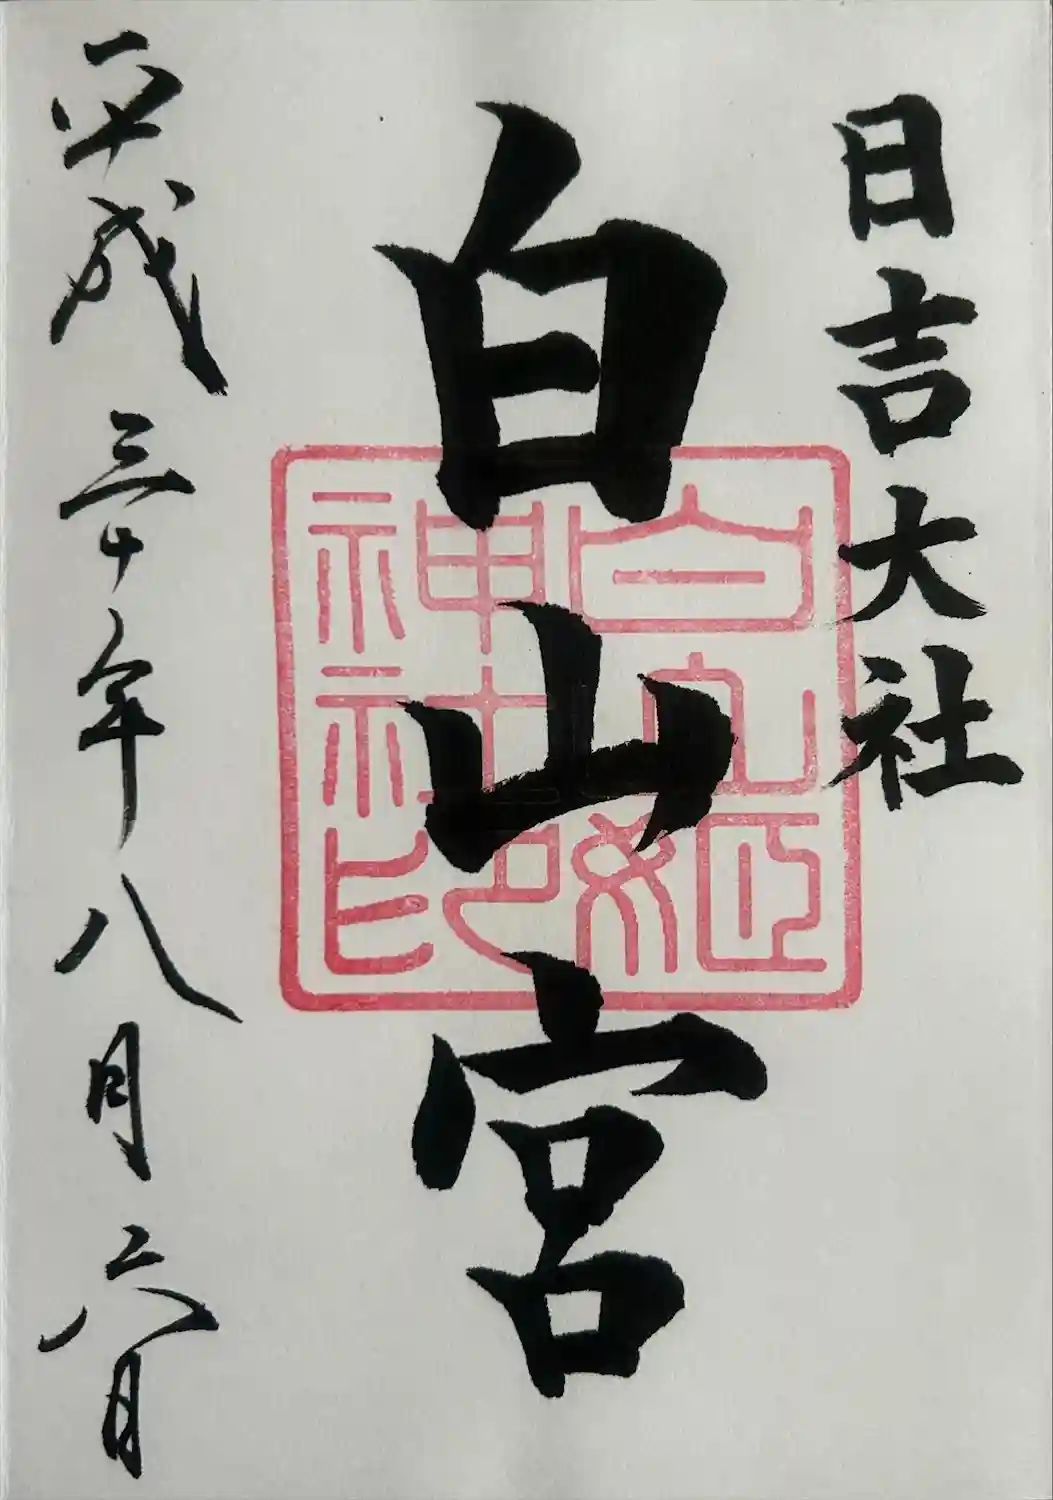 日吉大社
白山宮
白山姫神社印
平成三十年八月六日